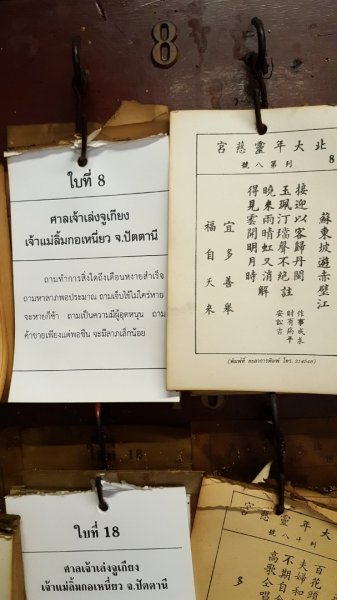 8
ใบที่ 8
ศาลเจ้าเล่งจูเกียง
เจ้าแม่ลิ้มกอเหนี่ยว จ.ปัตตานี
ถามทำการสิ่งใดถึงเดือนหงายสำเร็จ
ถามหาลาภพอประมาณ ถามเจ็บไข้ไม่ใคร่หาย
จะหายก็ช้า ถามเป็นความมีผู้อุดหนุน ถาม
ค้าขายเพียงแต่พอชิน จะมีลาภเล็กน้อย
北大年靈慈宮
8
列第八號
蘇東坡遊赤壁江
接迎以客歸丹闕
玉珮汀璫聲不絕註
曉來雨晴虹又消解
得見雲開明月時
作事成表
財有病平
安訟吉
宜多善舉
福自天來
(พิมพ์ที่ ยะลาการพิมพ์ โทร. 214548)
18
ใบที่ 18
ศาลเจ้าเล่งจูเกียง
เจ้าแม่ลิ้มกอเหนี่ยว จ.ปัตตานี
大年靈慈宮
列十八號
百花頭
夫婦和
不期自
高歌全唱
多